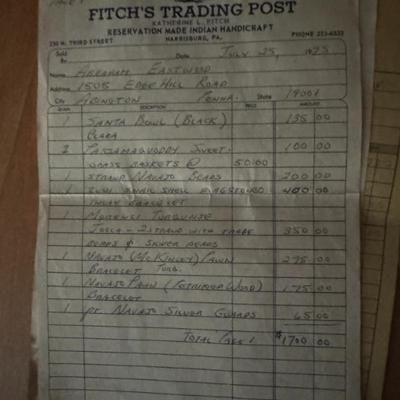 PAGE 1
FITCH'S TRADING POST
KATHERINE L. FITCH
RESERVATION MADE INDIAN HANDICRAFT
230 N. THIRD STREET HARRISBURG, PA. PHONE 233-4533
Sold By Date JULY 25, 1975
Name ABRAHAM EASTWOOD
Address 1505 EDGE HILL ROAD
City ABINGTON PENNA. State 19001
QUAN. DESCRIPTION PRICE AMOUNT
1 SANTA BOWL (BLACK) 135 00
CLARA
2 PASSAMAQUODDY SWEET- 100 00
GRASS BASKETS @ 50.00
1 STRAND NAVAJO BEADS 200 00
1 ZUNI SNAIL SHELL 400 00
INLAY BRACELET
1 MORENCI TURQUOISE
JOCLA - 2 STRAND WITH 350 00
BEADS & SILVER BEADS
1 NAVAJO (MCKINLEY) PAWN 275 00
BRACELET TURQ.
1 NAVAJO PAWN (PETRIFIED WOOD) 175 00
BRACELET
1 PR. NAVAJO SILVER GUARDS 65 00
TOTAL PAGE 1 $1700 00